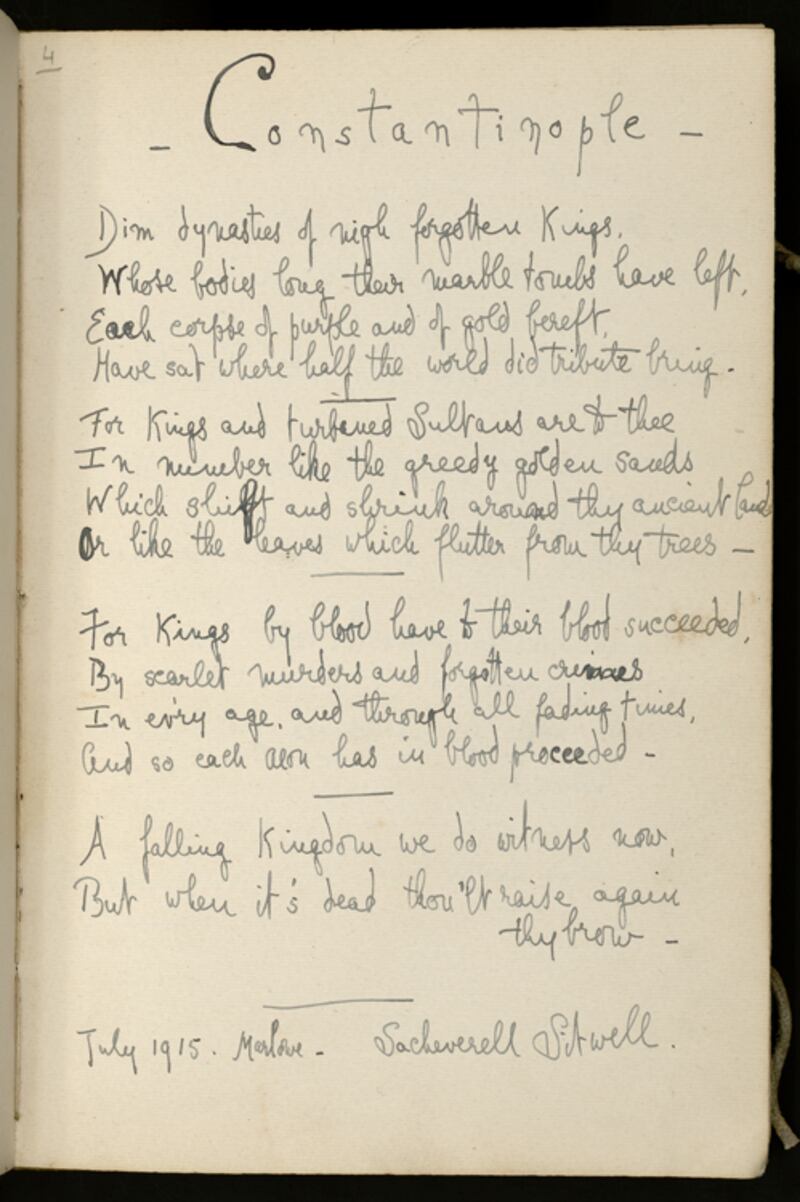 4
- Constantinople -
Dim dynasties of nigh forgotten Kings.
Whose bodies long their marble tombs have left,
Each corpse of purple and of gold bereft,
Have sat where half the world did tribute bring -
For Kings and turbaned Sultans are to thee
In number like the greedy golden sands
Which shift and shrink around thy ancient lands
Or like the leaves which flutter from thy trees -
For Kings by blood have to their blood succeeded,
By scarlet murders and forgotten crimes
In ev'ry age, and through all fading times,
And so each aeon has in blood proceeded -
A falling Kingdom we do witness now,
But when it's dead thou'lt raise again
thy brow -
July 1915. Marlowe - Sacheverell Sitwell.